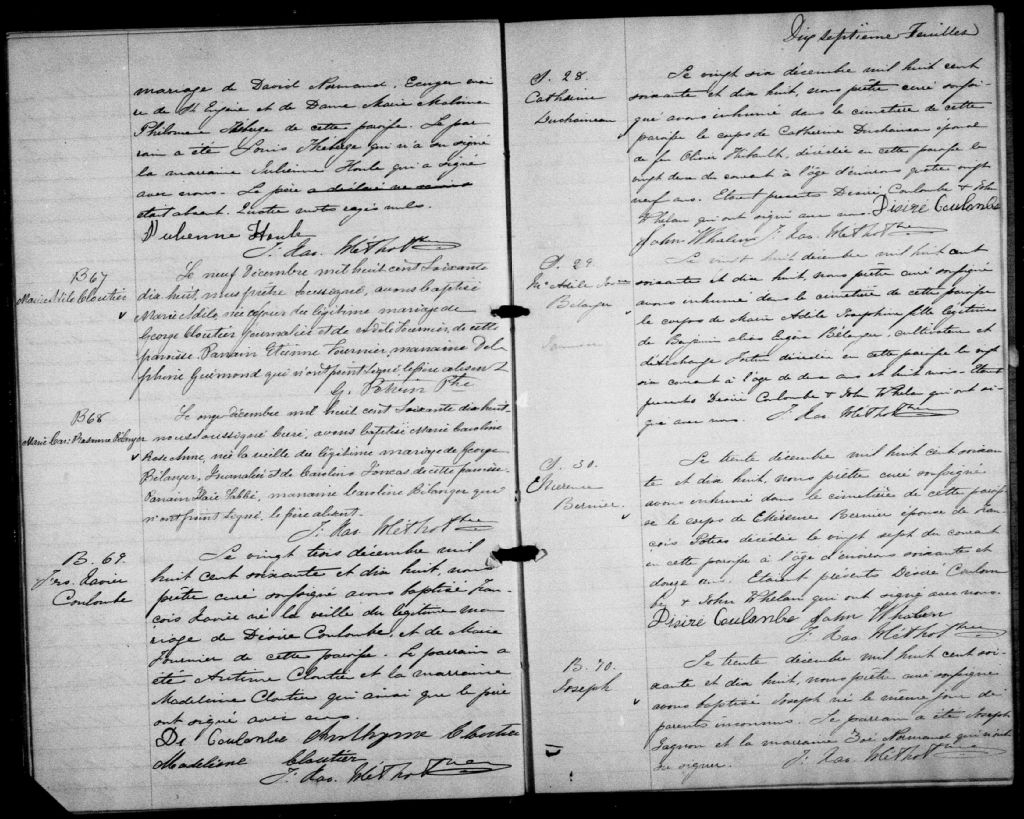 mariage de David Normand, Ecuyer mai
re de St Eugène et de Dame Marie
Philomene de cette paroisse. Le par
rain a été Louis qui n'a su signé
la marraine Julienne Houle qui a signé
avec nous. Le père a déclaré ne savoir
était absent. mots rayés nuls.
Julienne Houle
F: Xav. Méthot Ptre
B67
Marie Adèle Cloutier
Le neuf décembre mil huit cent soixante
dix huit, nous prêtre soussigné, avons baptisé
Marie Adèle, née du légitime mariage de
George Cloutier journalier et de Adèle Fournier, de cette
paroisse. Parrain Etienne Fournier, marraine Del
phine Guimond qui n'ont point signé le père absent
G. Potvin Ptre
B68
Marie Car. Rosanna Bélanger
Le onze décembre mil huit cent soixante dix huit
nous soussigné Curé, avons baptisé Marie Caroline
Rose Anne, née la veille du légitime mariage de George
Bélanger, Journalier & de Caroline Joncas de cette paroisse
Parrain Labbé, marraine Caroline Bélanger qui
n'ont point signé, le père absent.
F: Xav. Méthot Ptre
B. 69.
Frs. Xavier
Coulombe
Le vingt trois décembre mil
huit cent soixante et dix huit, nous
prêtre curé soussigné avons baptisé Fran
çois Xavier né la veille du légitime ma
riage de Désiré Coulombe, et de Marie
Fournier de cette paroisse. Le parrain a
été Antime Cloutier et la marraine
Madeleine Cloutier qui ainsi que le père
ont signé avec nous.
De Coulombe Cloutier
Madeleine Cloutier
F: Xav. Méthot Ptre
Dix septième Feuillet
S. 28.
Catherine
Duchaineau
Le vingt six décembre mil huit cent
soixante et dix huit, nous prêtre curé soussi-
gné avons inhumé dans le cimetière de cette
paroisse le corps de Catherine Duchaineau épouse
de feu Olivier Thibault, décédée en cette paroisse le
vingt deux du courant à l'âge d'environ quatre vingt
neuf ans. Etant présents Désiré Coulombe & John
Whelan qui ont signé avec nous. Désiré Coulombe
John Whalen F: Xav. Méthot Ptre
S. 29.
Me Adèle
Bélanger
Le vingt huit décembre mil huit cent
soixante et dix huit, nous prêtre curé soussigné
avons inhumé dans le cimetière de cette paroisse
le corps de Marie Adèle Josephine fille légitime
de Benjamin alias Eugène Bélanger, cultivateur et
décédée en cette paroisse le vingt
six courant à l'âge de deux ans et huit mois. Etant
présents Désiré Coulombe & John Whelan qui ont si-
gné avec nous. F: Xav. Méthot Ptre
S. 30.
Bernier.
Le trente décembre mil huit cent soixan
te et dix huit, nous prêtre curé soussigné
avons inhumé dans le cimetière de cette parois
se le corps de Bernier épouse de Fran
çois décédée le vingt sept du courant
en cette paroisse à l'âge d'environ soixante et
douze ans. Etaient présents Désiré Coulom
be & John Whelan qui ont signé avec nous.
Désiré Coulombe John Whalen
F: Xav. Méthot Ptre
B. 70.
Joseph
Le trente décembre mil huit cent soi-
xante et dix huit, nous prêtre curé soussigné
avons baptisé Joseph né le même jour de
parents inconnus. Le parrain a été Joseph
Gagnon et la marraine Zoé Normand qui n'ont
su signer. F: Xav. Méthot Ptre